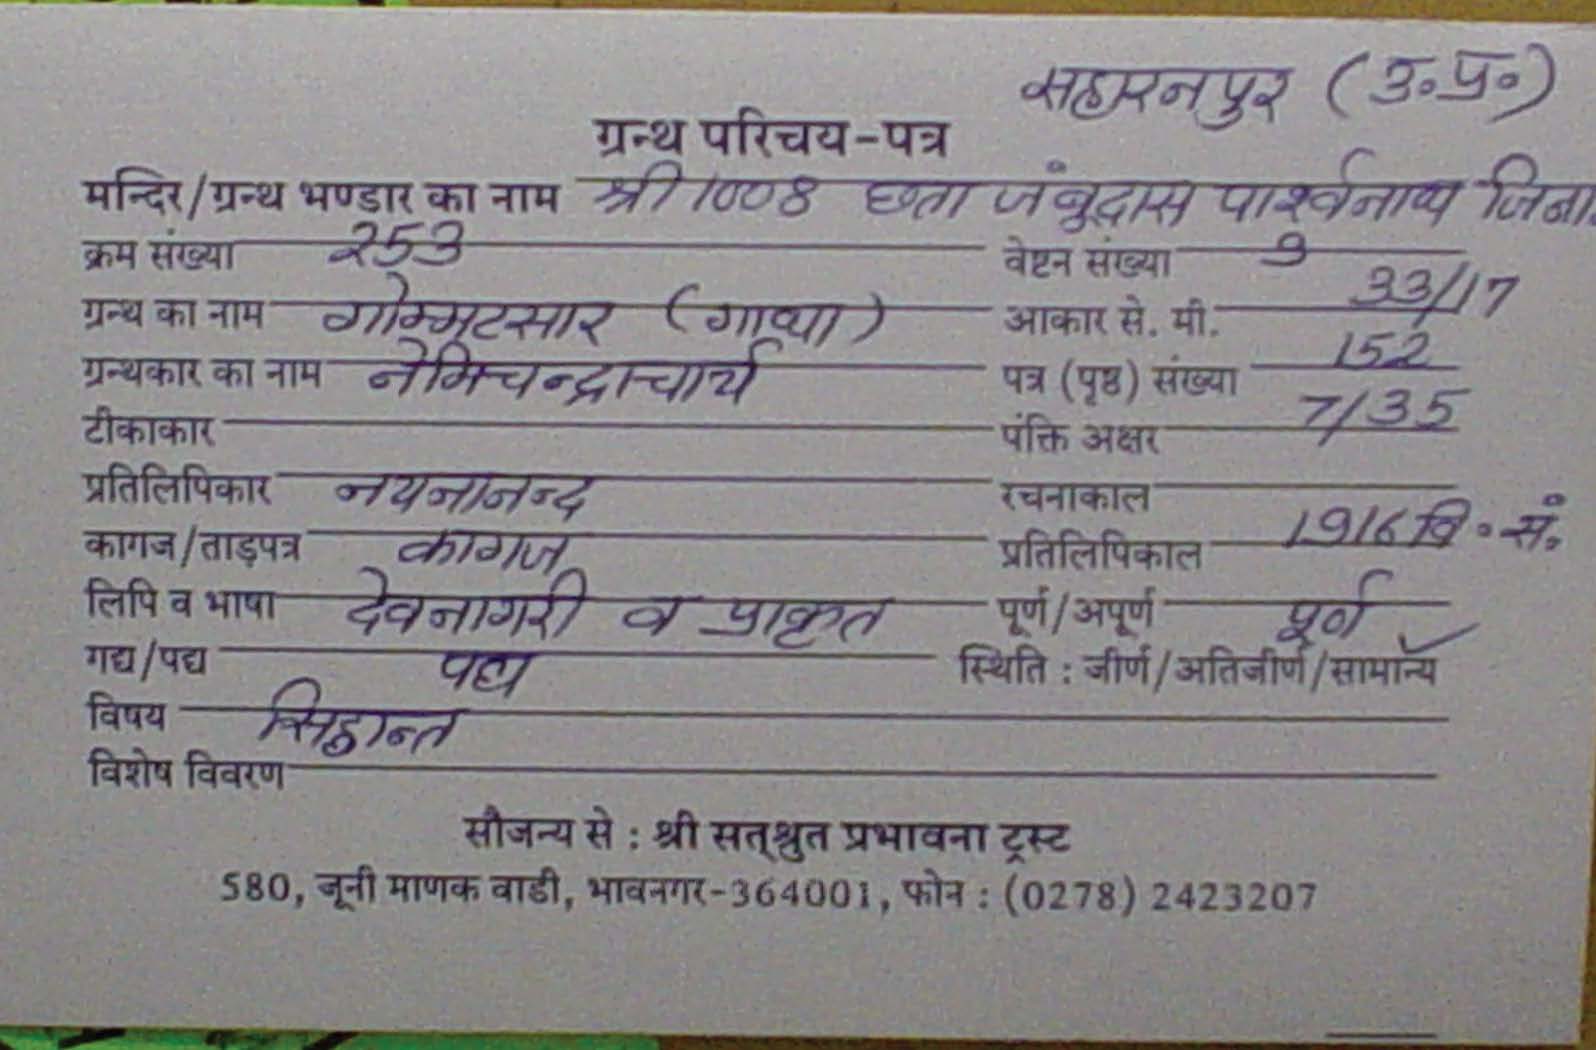 सहारनपुर (उ.प्र.)
ग्रन्थ परिचय-पत्र
मन्दिर/ग्रन्थ भण्डार का नाम श्री 1008 छता जंबुदास पार्श्वनाथ जिना
क्रम संख्या 253 वेष्टन संख्या
ग्रन्थ का नाम गोम्मटसार (गाथा) आकार से. मी. 33/17
ग्रन्थकार का नाम नेमिचन्द्राचार्य पत्र (पृष्ठ) संख्या 152
टीकाकार पंक्ति अक्षर 7/35
प्रतिलिपिकार नयनानन्द रचनाकाल
कागज/ताड़पत्र कागज प्रतिलिपिकाल 1916 वि. सं.
लिपि व भाषा देवनागरी व प्राकृत पूर्ण/अपूर्ण पूर्ण
गद्य/पद्य पद्य स्थिति : जीर्ण/अतिजीर्ण/सामान्य
विषय सिद्धान्त
विशेष विवरण
सौजन्य से : श्री सत्श्रुत प्रभावना ट्रस्ट
580, जूनी माणक वाडी, भावनगर-364001, फोन : (0278) 2423207